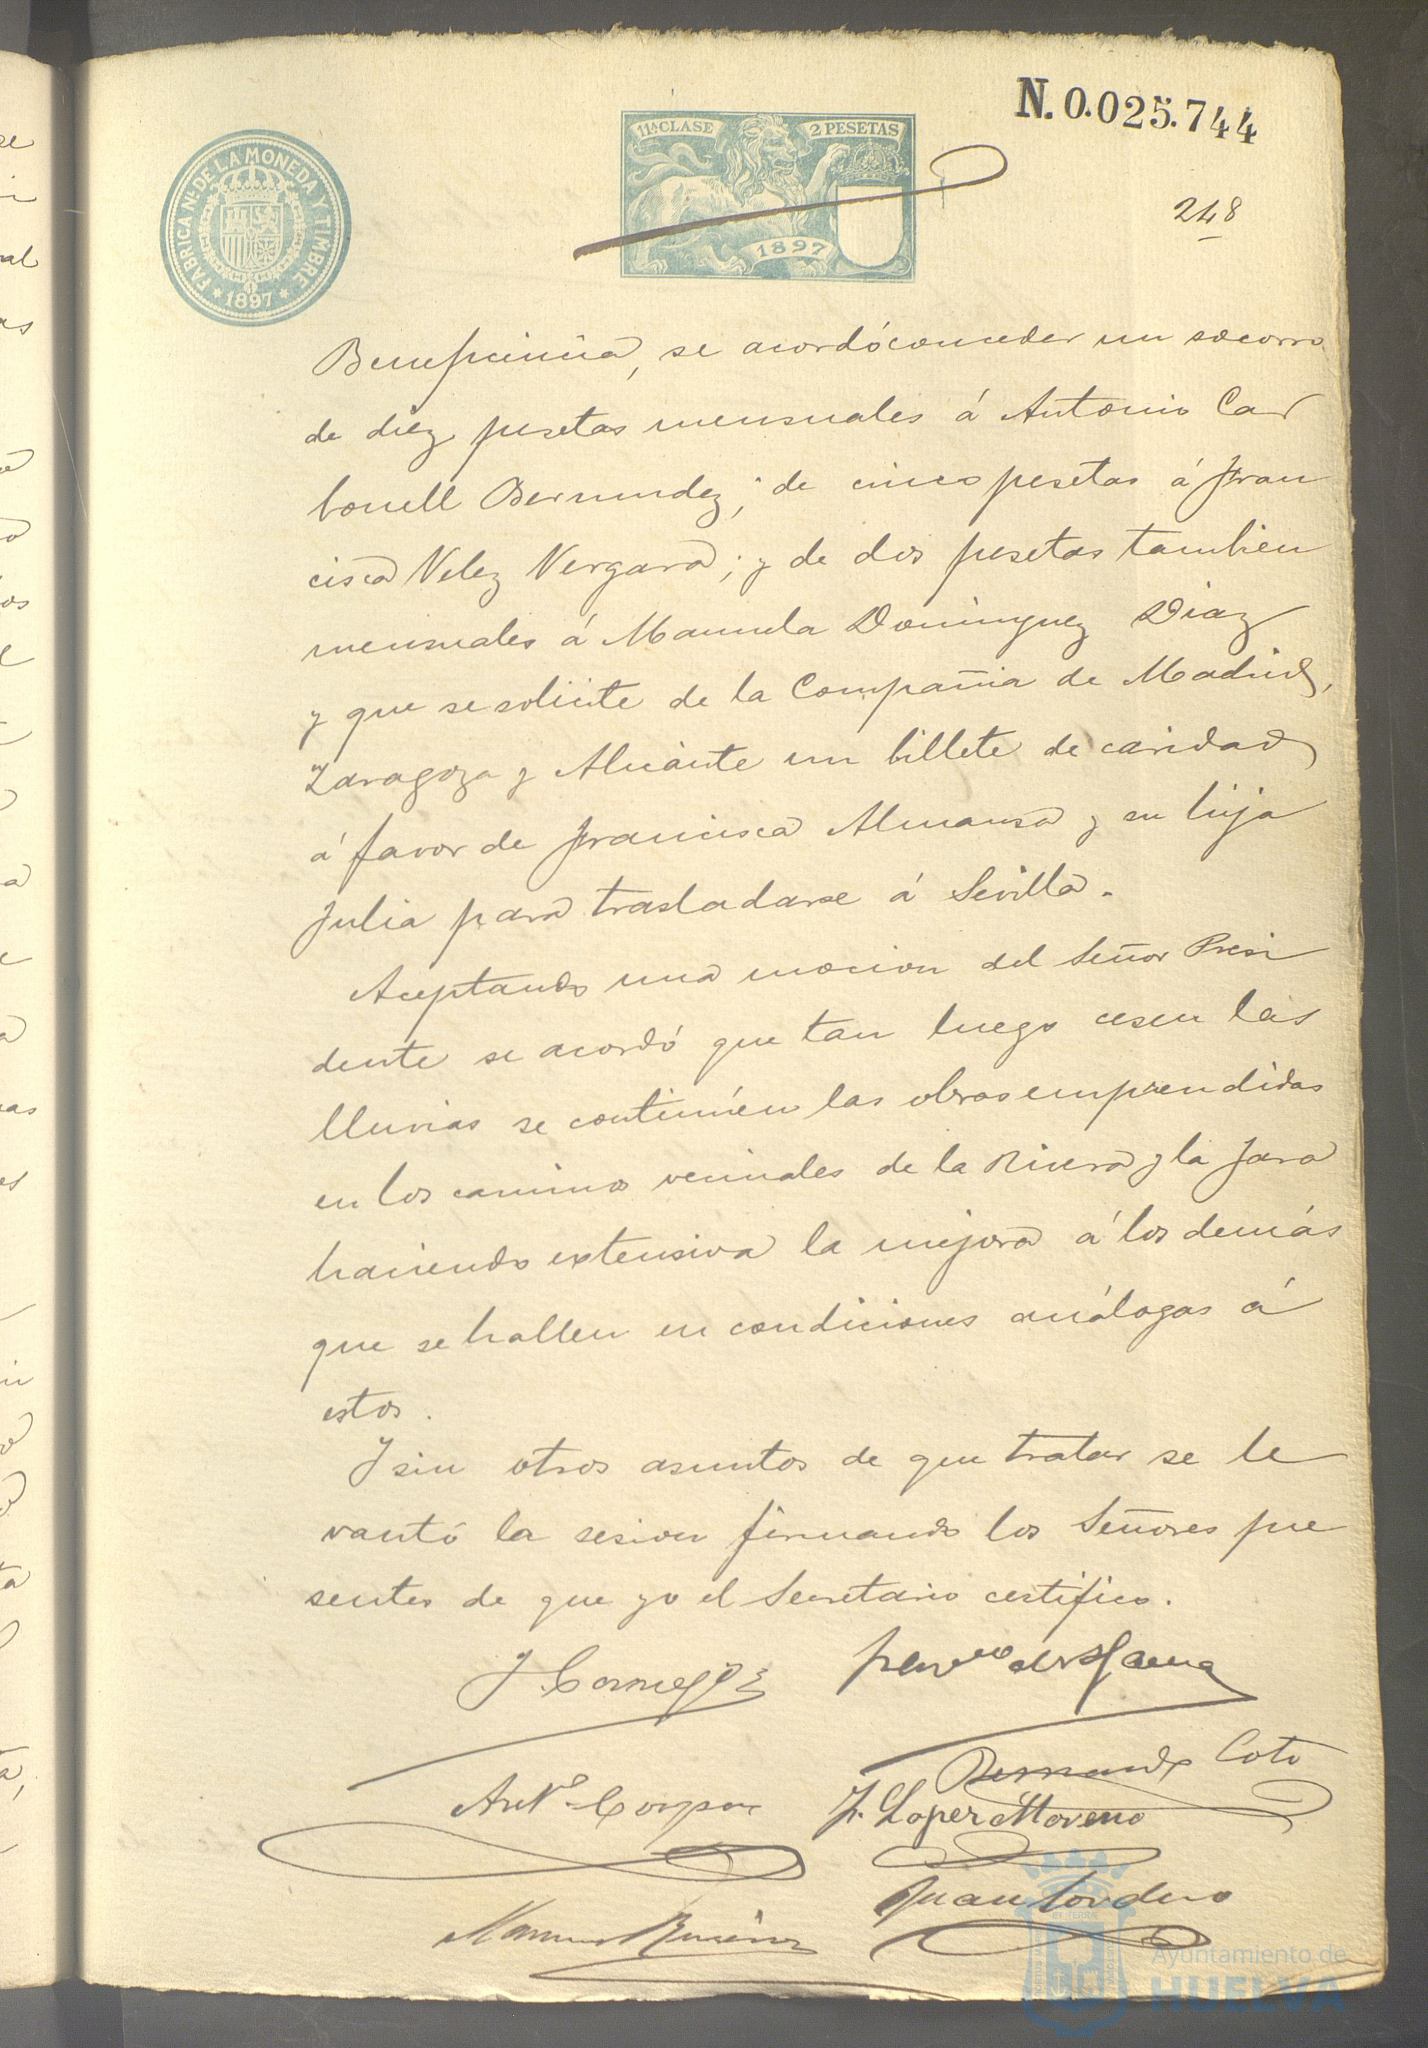 N. 0.025.744
11ª CLASE
2 PESETAS
1897
FABRICA NL. DE LA MONEDA Y TIMBRE
* 1897 *
248
Beneficencia, se acordó conceder un socorro
de diez pesetas mensuales á Antonio Car
bonell Bermudez; de cinco pesetas á Fran
cisca Velez Vergara; y de dos pesetas tambien
mensuales á Manuela Dominguez Diaz
y que se solicite de la Compañia de Madrid,
Zaragoza y Alicante un billete de caridad
á favor de Francisca Almansa y su hija
Julia para trasladarse á Sevilla.
Aceptando una mocion del Señor Presi
dente se acordó que tan luego cesen las
lluvias se continúen las obras emprendidas
en los caminos vecinales de la Rivera y la Jara
haciendo extensiva la mejora á los demás
que se hallen en condiciones análogas á
estos.
Y sin otros asuntos de que tratar se le
vantó la sesion firmando los Señores pre
sentes de que yo el Secretario certifico.
Bernardo Coto
Antº
F. Lopez Moreno
Juan Cordero
Manuel
Ayuntamiento de
HUELVA